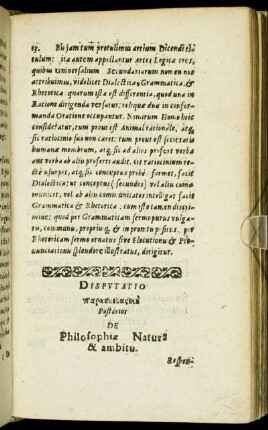 63. Eò jam tùm protulimus artium Dicendi ti-
tulum: ita autem appellantur Artes Logicæ tres,
quibus Universalium Secundariarum nomen non
attribuimus, videlicet Dialectica, Grammatica &
Rhetorica quarum ista est differentia, quòd una in
Ratione dirigenda versatur: reliquæ duæ in confor-
manda Oratione occupantur. Nimirum Homo hîc
consideratur, tum prout est Animal rationale, atq;
sic ratiocinio suo non caret: tum prout est societatis
humanæ membrum, atq; sic ad alios profert verba
aut verba ab aliis proferri audit. Ut ratiocinium re-
ctè usurpet, atq; sic conceptus probè formet, facit
Dialectica: ut conceptus (secundos) vel aliis commu-
nicet, vel ab aliis communicatos intelligat facit
Grammatica & Rhetorica: cum isto tamen discri-
mine; quod per Grammaticam sermo purus vulga-
ris, communis, proprius, & in promtu sit; per
Rhetoricam sermo ornatus sive Elocutionis & Pro-
nunciationis splendore illustratus, dirigitur.
DISPUTATIO
Posterior
DE
Philosophiæ Natura
& ambitu.
Respon-